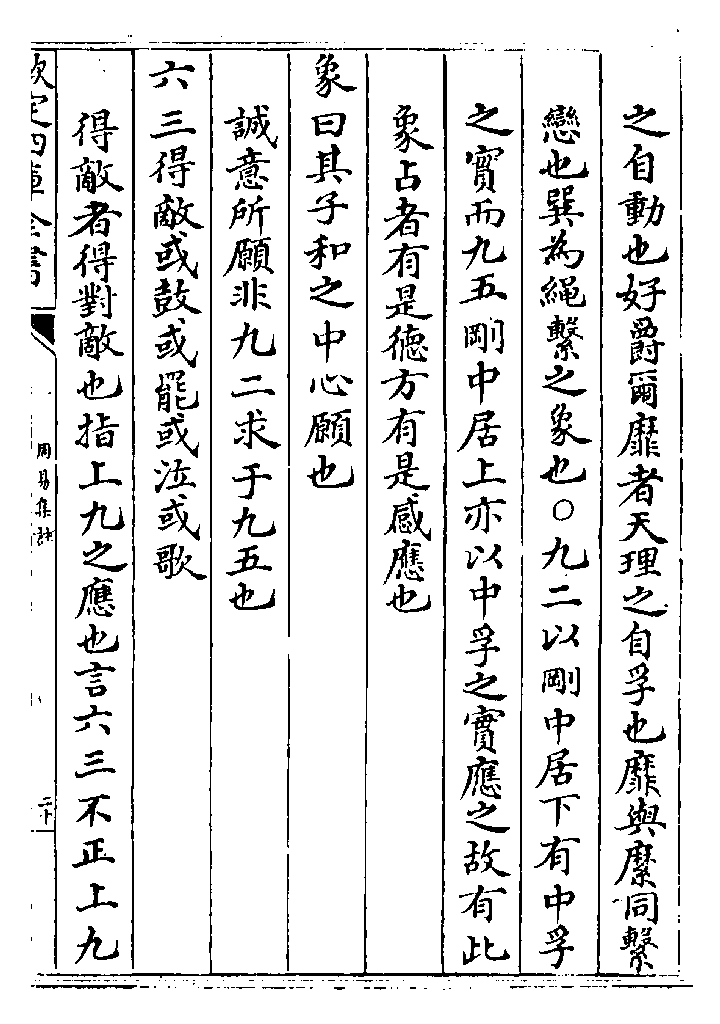 之自動也好爵爾靡者天理之自孚也靡與縻同繫
戀也巽為繩繫之象也○九二以剛中居下有中孚
之實而九五剛中居上亦以中孚之實應之故有此
象占者有是德方有是感應也
象曰其子和之中心願也
誠意所願非九二求于九五也
六三得敵或鼓或罷或泣或歌
得敵者得對敵也指上九之應也言六三不正上九
欽定四庫全書
周易集註
二十